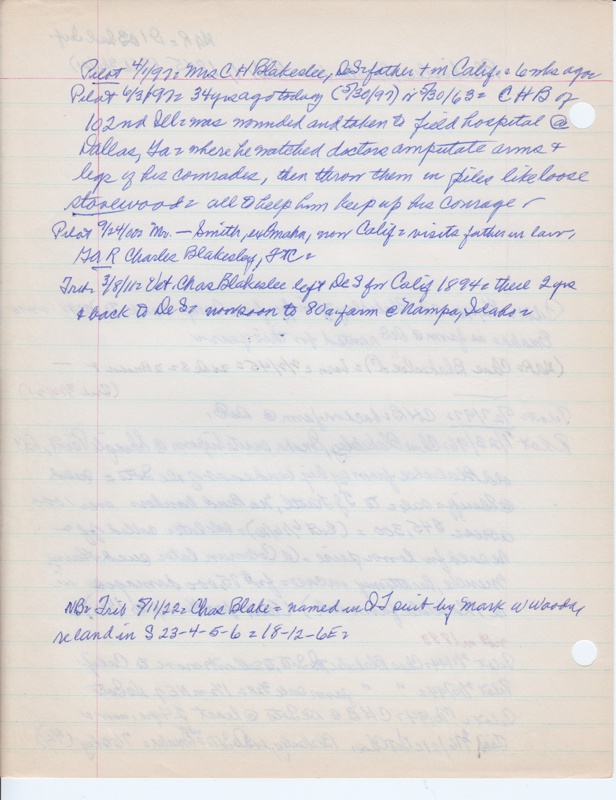 Pilot 4/1/97= Mrs C H Blakeslee, DeS= father + in Calif.= 6 wks ago=
Pilot 6/3/97= 34 yrs ago today (5/30/97) ir 5/30/63= C H B of
102nd Ill= was wounded and taken to field hospital @
Dallas, Ga= where he watched doctors amputate arms +
legs of his comrades, then throw them in piles like loose
stovewood= all to help him keep up his courage
Pilot 9/24/02= Mr. — Smith, ex Omaha, now Calif= visits father in law,
Ga R Charles Blakesley, STC=
Trib= 3/8/11= Vet. Chas Blakeslee left DeS for Calif 1894= there 2 yrs
+ back to DeS= now soon to 80a farm @ Nampa, Idaho=
NB= Trib 5/11/22= Chas Blake= named in QT suit by Mark W Woods,
re land in S 23-4-5-6=18-12-6E=